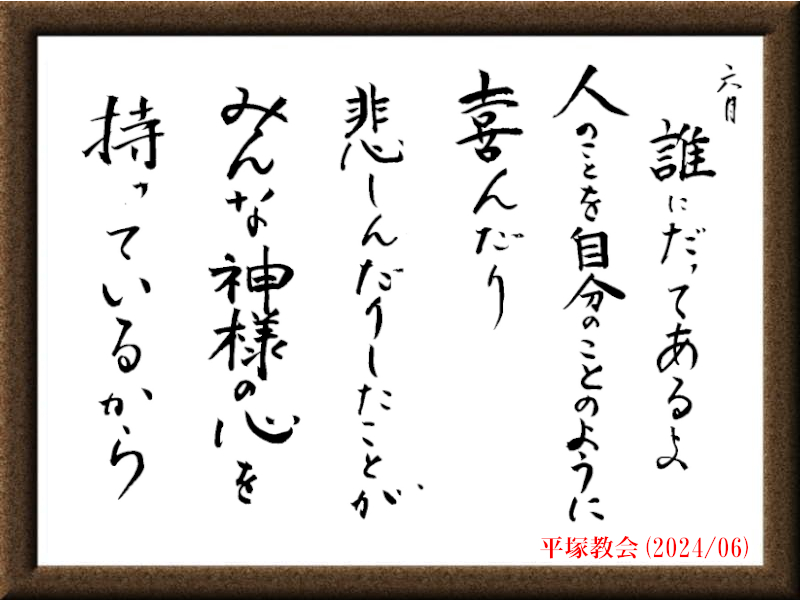 六月
誰にだってあるよ
人のことを自分のことのように
喜んだり
悲しんだりしたことが
みんな神様の心を
持っているから
平塚教会(2024/06)